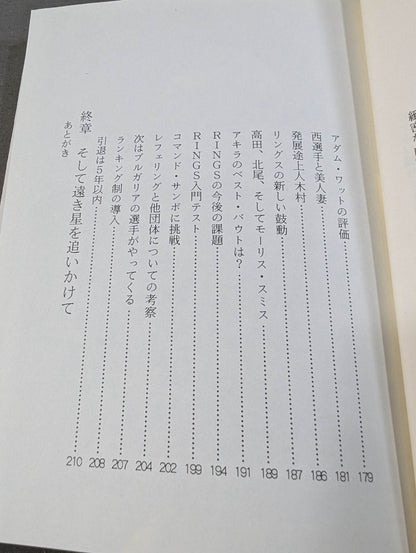 アダム・ワットの評価……179
西選手と美人妻……181
発展途上人木村……186
リングスの新しい鼓動……187
高田、北尾、そしてモーリス・スミス……189
アキラのベスト・バウトは?……191
RINGSの今後の課題……194
RINGS入門テスト……199
コマンド・サンボに挑戦……202
レフェリングと他団体についての考察……204
次はブルガリアの選手がやってくる……207
ランキング制の導入……208
引退は5年以内……210
終章 そして遠き星を追いかけて
あとがき